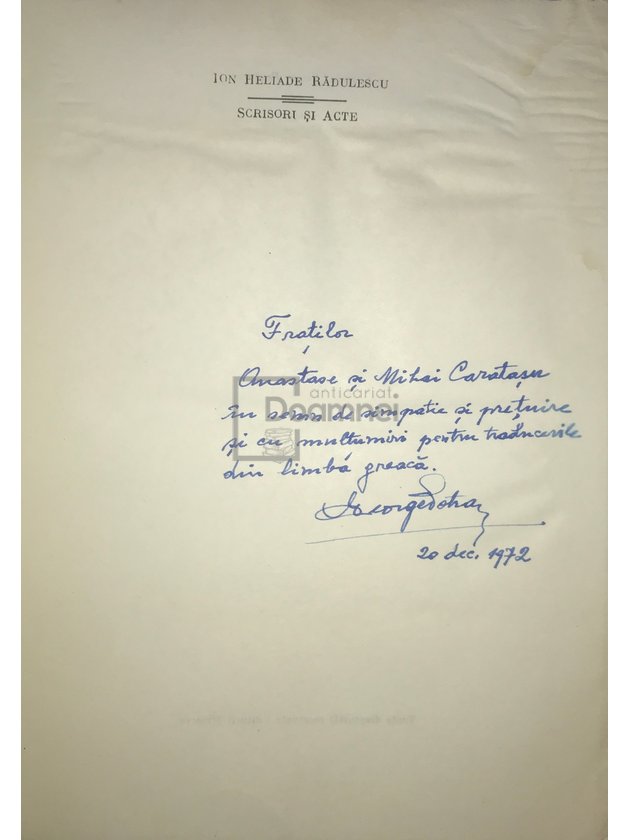 ION HELIADE RĂDULESCU
SCRISORI ȘI ACTE
Fraților
Anastase și Mihai Caratașu
în semn de simpatie și prețuire
și cu mulțumiri pentru traducerile
din limba greacă.
20 dec. 1972
anticariat
Doamnei